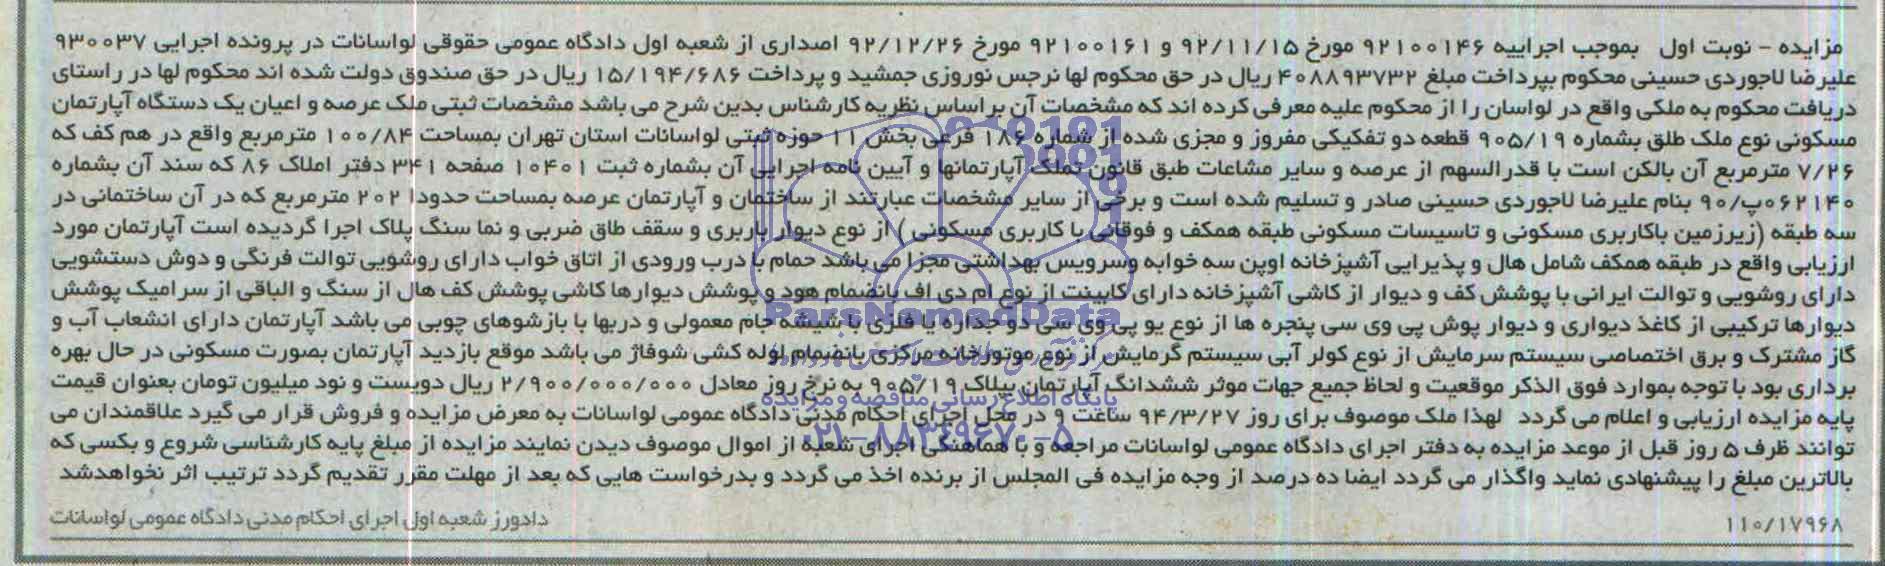 مزایده - نوبت اول بموجب اجراییه ۹۲۱۰۰۱۴۶ مورخ ۹۲/۱۱/۱۵ و ۹۲۱۰۰۱۶۱ مورخ ۹۲/۱۲/۲۶ اصداری از شعبه اول دادگاه عمومی حقوقی لواسانات در پرونده اجرایی ۹۳۰۰۳۷
علیرضا لاجوردی حسینی محکوم بپرداخت مبلغ ۴۰۸۸۹۳۷۳۲ ریال در حق محکوم لها نرجس نوروزی جمشید و پرداخت ۱۵/۱۹۴/۶۸۶ ریال در حق صندوق دولت شده اند محکوم لها در راستای
دریافت محکوم به ملکی واقع در لواسان را از محکوم علیه معرفی کرده اند که مشخصات آن براساس نظریه کارشناس بدین شرح می باشد مشخصات ثبتی ملک عرصه و اعیان یک دستگاه آپارتمان
مسکونی نوع ملک طلق بشماره ۹۰۵/۱۹ قطعه دو تفکیکی مفروز و مجزی شده از شماره ۱۸۶ فرعی بخش ۱۱ حوزه ثبتی لواسانات استان تهران بمساحت ۱۰۰/۸۴ مترمربع واقع در هم کف که
۷/۲۶ مترمربع آن بالکن است با قدرالسهم از عرصه و سایر مشاعات طبق قانون تملک آپارتمانها و آیین نامه اجرایی آن بشماره ثبت ۱۰۴۰۱ صفحه ۳۴۱ دفتر املاک ۸۶ که سند آن بشماره
۰۶۲۱۴۰پ/۹۰ بنام علیرضا لاجوردی حسینی صادر و تسلیم شده است و برخی از سایر مشخصات عبارتند از ساختمان و آپارتمان عرصه بمساحت حدودا ۲۰۲ مترمربع که در آن ساختمانی در
سه طبقه (زیرزمین باکاربری مسکونی و تاسیسات مسکونی طبقه همکف و فوقانی با کاربری مسکونی) از نوع دیوار باربری و سقف طاق ضربی و نما سنگ پلاک اجرا گردیده است آپارتمان مورد
ارزیابی واقع در طبقه همکف شامل هال و پذیرایی آشپزخانه اوپن سه خوابه وسرویس بهداشتی مجزا می باشد حمام با درب ورودی از اتاق خواب دارای روشویی توالت فرنگی و دوش دستشویی
دارای روشویی و توالت ایرانی با پوشش کف و دیوار از کاشی آشپزخانه دارای کابینت از نوع ام دی اف بانضمام هود و پوشش دیوارها کاشی پوشش کف هال از سنگ و الباقی از سرامیک پوشش
دیوارها ترکیبی از کاغذ دیواری و دیوار پوش پی وی سی پنجره ها از نوع یو پی وی سی دو جداره یا فلزی با شیشه جام معمولی و دربها با بازشوهای چوبی می باشد آپارتمان دارای انشعاب آب و
گاز مشترک و برق اختصاصی سیستم سرمایش از نوع کولر آبی سیستم گرمایش از نوع موتورخانه مرکزی بانضمام لوله کشی شوفاژ می باشد موقع بازدید آپارتمان بصورت مسکونی در حال بهره
برداری بود با توجه بموارد فوق الذکر موقعیت و لحاظ جمیع جهات موثر ششدانگ آپارتمان بپلاک ۹۰۵/۱۹ به نرخ روز معادل ۲/۹۰۰/۰۰۰/۰۰۰ ریال دویست و نود میلیون تومان بعنوان قیمت
پایه مزایده ارزیابی و اعلام می گردد لهذا ملک موصوف برای روز ۹۴/۳/۲۷ ساعت ۹ در محل اجرای احکام مدنی دادگاه عمومی لواسانات به معرض مزایده و فروش قرار می گیرد علاقمندان می
توانند ظرف ۵ روز قبل از موعد مزایده به دفتر اجرای دادگاه عمومی لواسانات مراجعه و با هماهنگی اجرای شعبه از اموال موصوف دیدن نمایند مزایده از مبلغ پایه کارشناسی شروع و بکسی که
بالاترین مبلغ را پیشنهادی نماید واگذار می گردد ایضا ده درصد از وجه مزایده فی المجلس از برنده اخذ می گردد و بدرخواست هایی که بعد از مهلت مقرر تقدیم گردد ترتیب اثر نخواهدشد
۱۱۰/۱۷۹۶۸ دادورز شعبه اول اجرای احکام مدنی دادگاه عمومی لواسانات
ParsNamadData
پایگاه اطلاع رسانی مناقصه و مزایده
۰۲۱-۸۸۳۴۹۶۷۰-۵